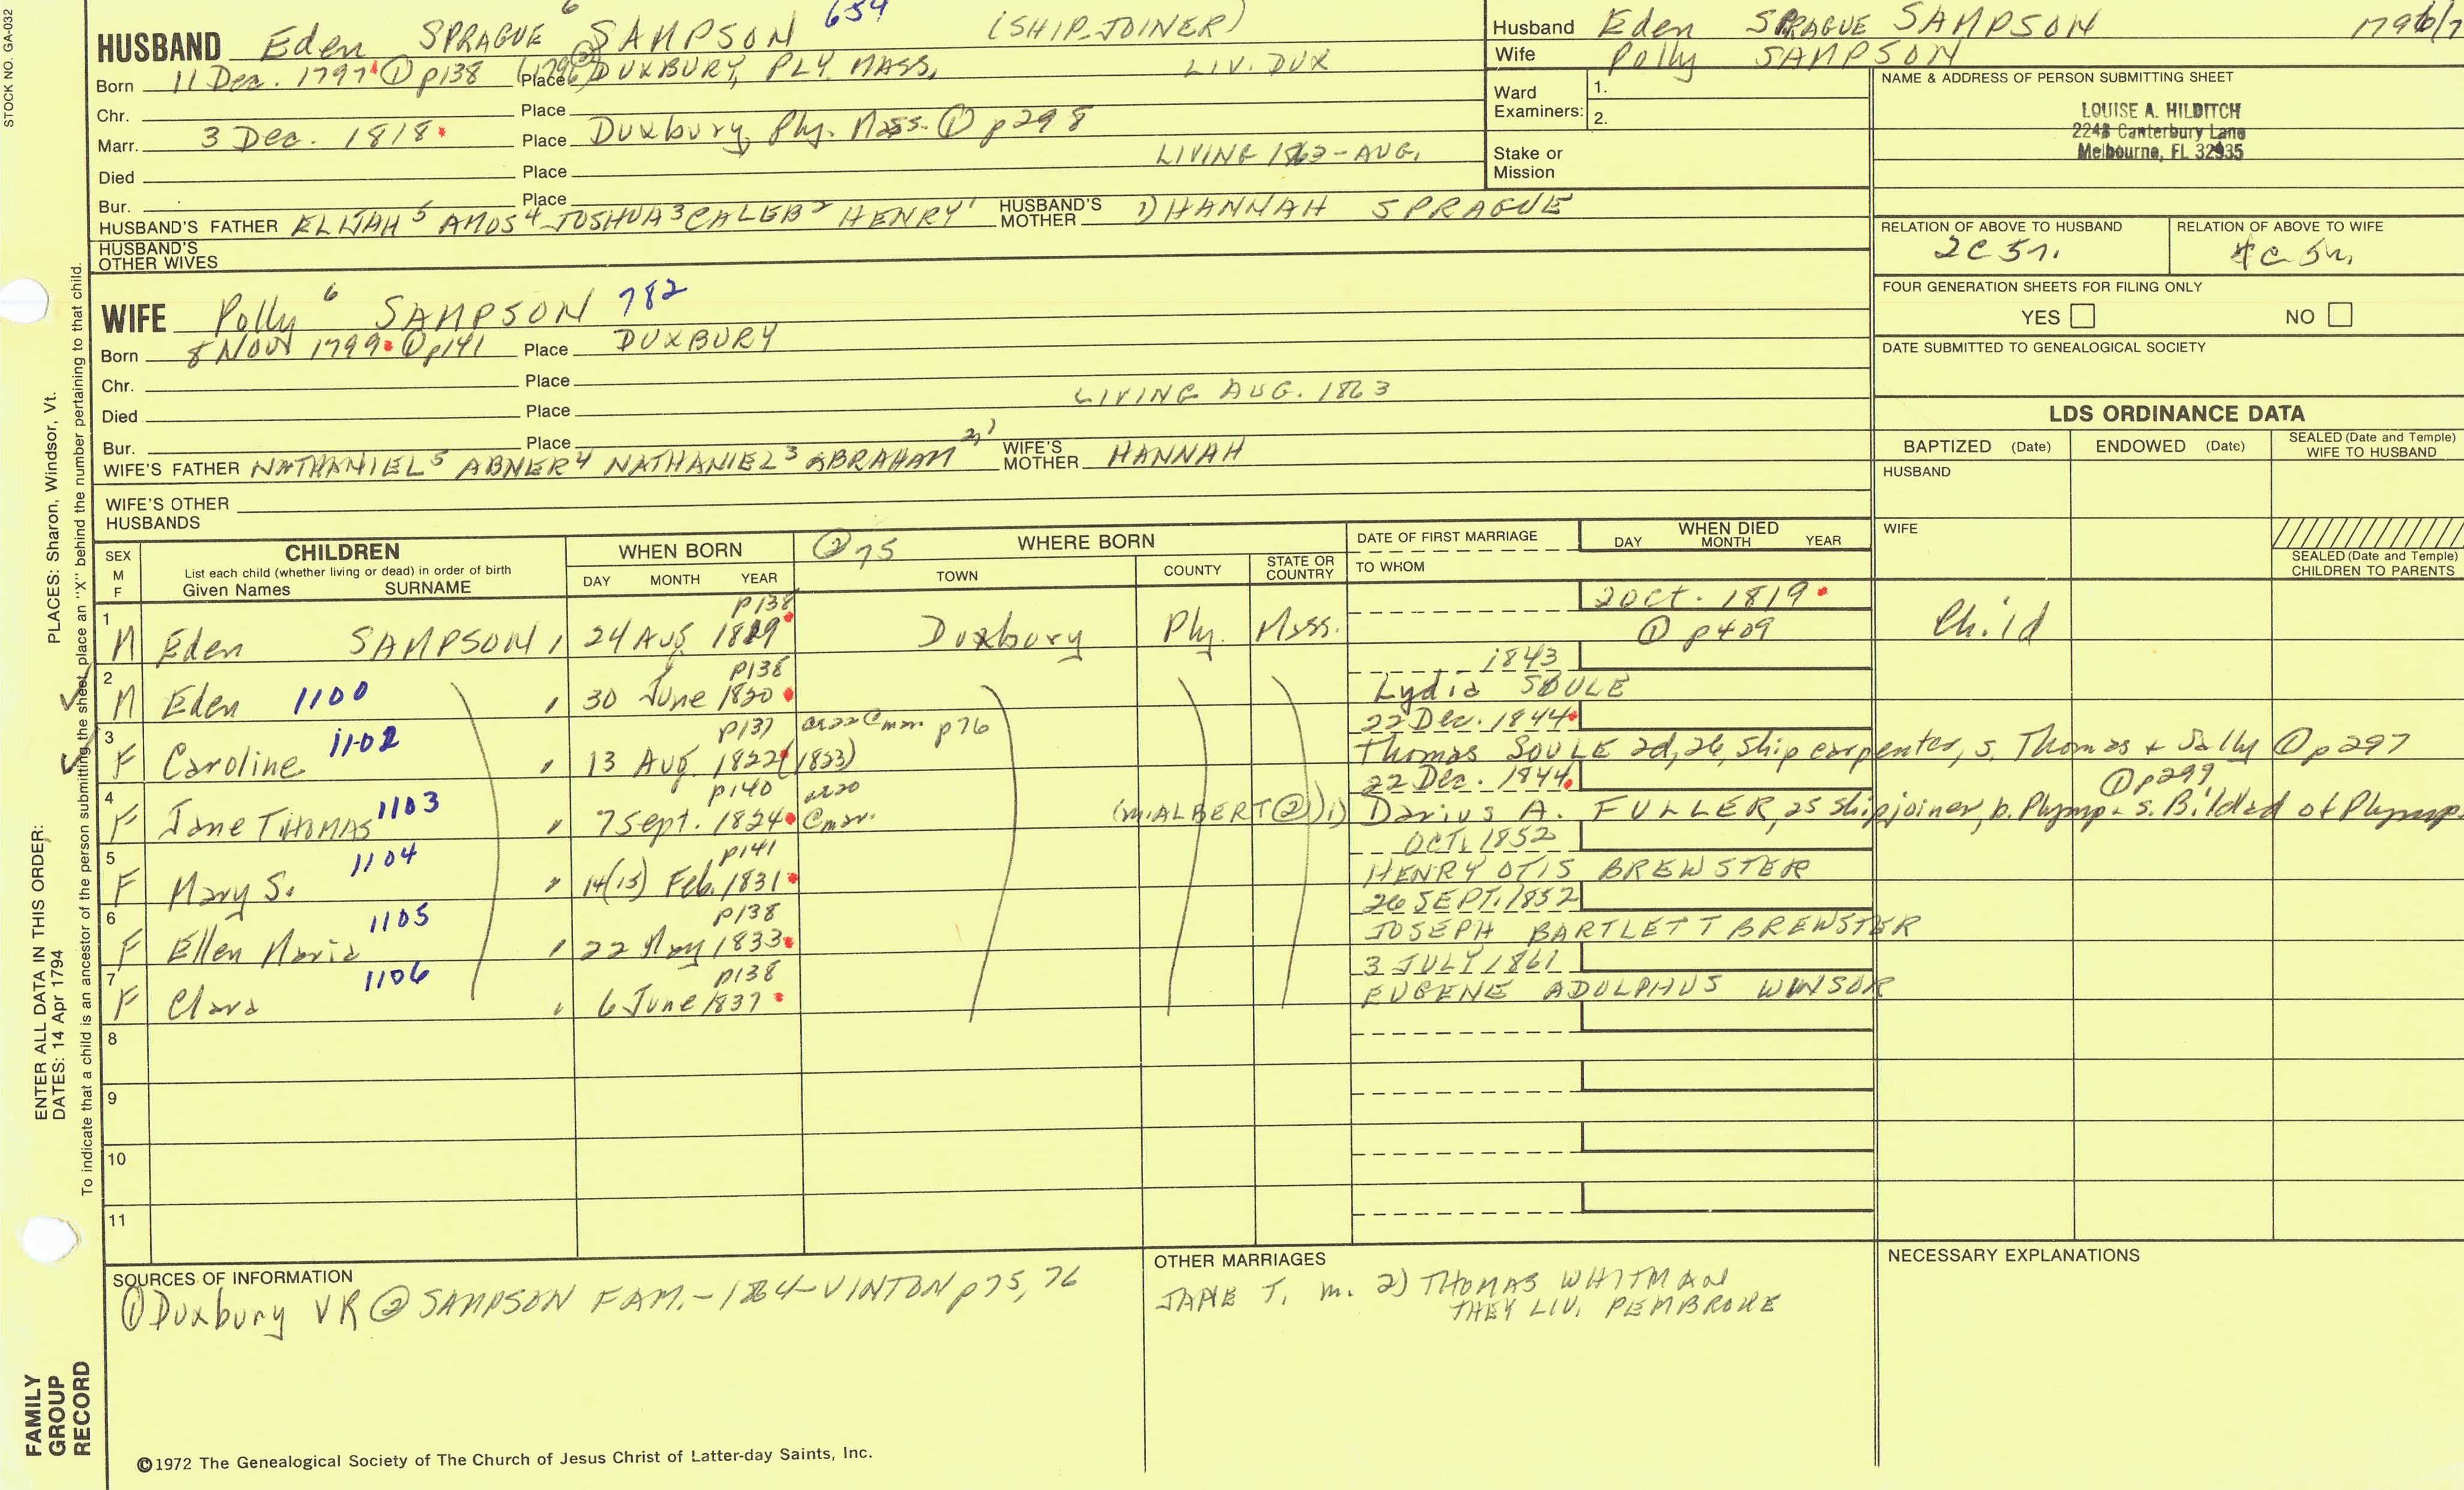 STOCK NO. GA-032
HUSBAND Eden SPRAGUE 6 SAMPSON 654 (SHIP JOINER)
Born 11 Dec. 1797 ① p138 (1796②) Place DUXBURY, PLY. MASS. LIV. DUX
Chr. Place
Marr. 3 Dec. 1818 Place Duxbury, Ply. Mass. ① p298
Died Place LIVING 1863-AUG.
Bur. Place
HUSBAND'S FATHER ELIJAH 5 AMOS 4 JOSHUA 3 CALEB 2 HENRY 1 HUSBAND'S MOTHER 1) HANNAH SPRAGUE
HUSBAND'S OTHER WIVES
Husband Eden SPRAGUE SAMPSON 1796/7
Wife Polly SAMPSON
Ward Examiners: 1.
2.
Stake or Mission
NAME & ADDRESS OF PERSON SUBMITTING SHEET
LOUISE A. HILDITCH
2248 Canterbury Lane
Melbourne, FL 32935
RELATION OF ABOVE TO HUSBAND RELATION OF ABOVE TO WIFE
2C 5r. 4C 5r.
FOUR GENERATION SHEETS FOR FILING ONLY
YES NO
DATE SUBMITTED TO GENEALOGICAL SOCIETY
WIFE Polly 6 SAMPSON 782
Born 8 Nov 1799 ① p141 Place DUXBURY
Chr. Place
Died Place LIVING AUG. 1863
Bur. Place
WIFE'S FATHER NATHANIEL 5 ABNER 4 NATHANIEL 3 ABRAHAM 2,1 WIFE'S MOTHER HANNAH
WIFE'S OTHER HUSBANDS
LDS ORDINANCE DATA
BAPTIZED (Date) ENDOWED (Date) SEALED (Date and Temple) WIFE TO HUSBAND
HUSBAND
WIFE
SEALED (Date and Temple) CHILDREN TO PARENTS
SEX M F CHILDREN List each child (whether living or dead) in order of birth Given Names SURNAME
WHEN BORN DAY MONTH YEAR
② 75 WHERE BORN TOWN COUNTY STATE OR COUNTRY
DATE OF FIRST MARRIAGE TO WHOM
WHEN DIED DAY MONTH YEAR
p138 2 Oct. 1819
1 M Eden SAMPSON 24 Aug 1819 Duxbury Ply. Mass. ① p409 Child
p138 1843
2 M Eden 1100 " 30 June 1820 Lydia SOULE
p137 ae 22 @ mar. p76 22 Dec. 1844
3 F Caroline 1102 " 13 Aug. 1822 (1823) Thomas SOULE 2d, 26, ship carpenter, s. Thomas + Sally ① p297
p140 ae 20 @ mar. 22 Dec. 1844 ① p299
4 F Jane THOMAS 1103 " 7 Sept. 1824 (m. ALBERT ②) 1) Darius A. FULLER, 25 ship joiner, b. Plymp. s. Bildad of Plymp.
p141 OCT. 1852
5 F Mary S. 1104 " 14(15) Feb. 1831 HENRY OTIS BREWSTER
p138 26 SEPT. 1852
6 F Ellen Maria 1105 " 22 May 1833 JOSEPH BARTLETT BREWSTER
p138 3 JULY 1861
7 F Clara 1106 " 6 June 1837 EUGENE ADOLPHUS WINSOR
8
9
10
11
SOURCES OF INFORMATION
① Duxbury VR ② SAMPSON FAM. - 1864 - VINTON p75, 76
OTHER MARRIAGES
JANE T. m. 2) THOMAS WHITMAN
THEY LIV. PEMBROKE
NECESSARY EXPLANATIONS
©1972 The Genealogical Society of The Church of Jesus Christ of Latter-day Saints, Inc.
FAMILY GROUP RECORD
ENTER ALL DATA IN THIS ORDER: PLACES: Sharon, Windsor, Vt.
DATES: 14 Apr 1794
To indicate that a child is an ancestor of the person submitting the sheet, place an "X" behind the number pertaining to that child.